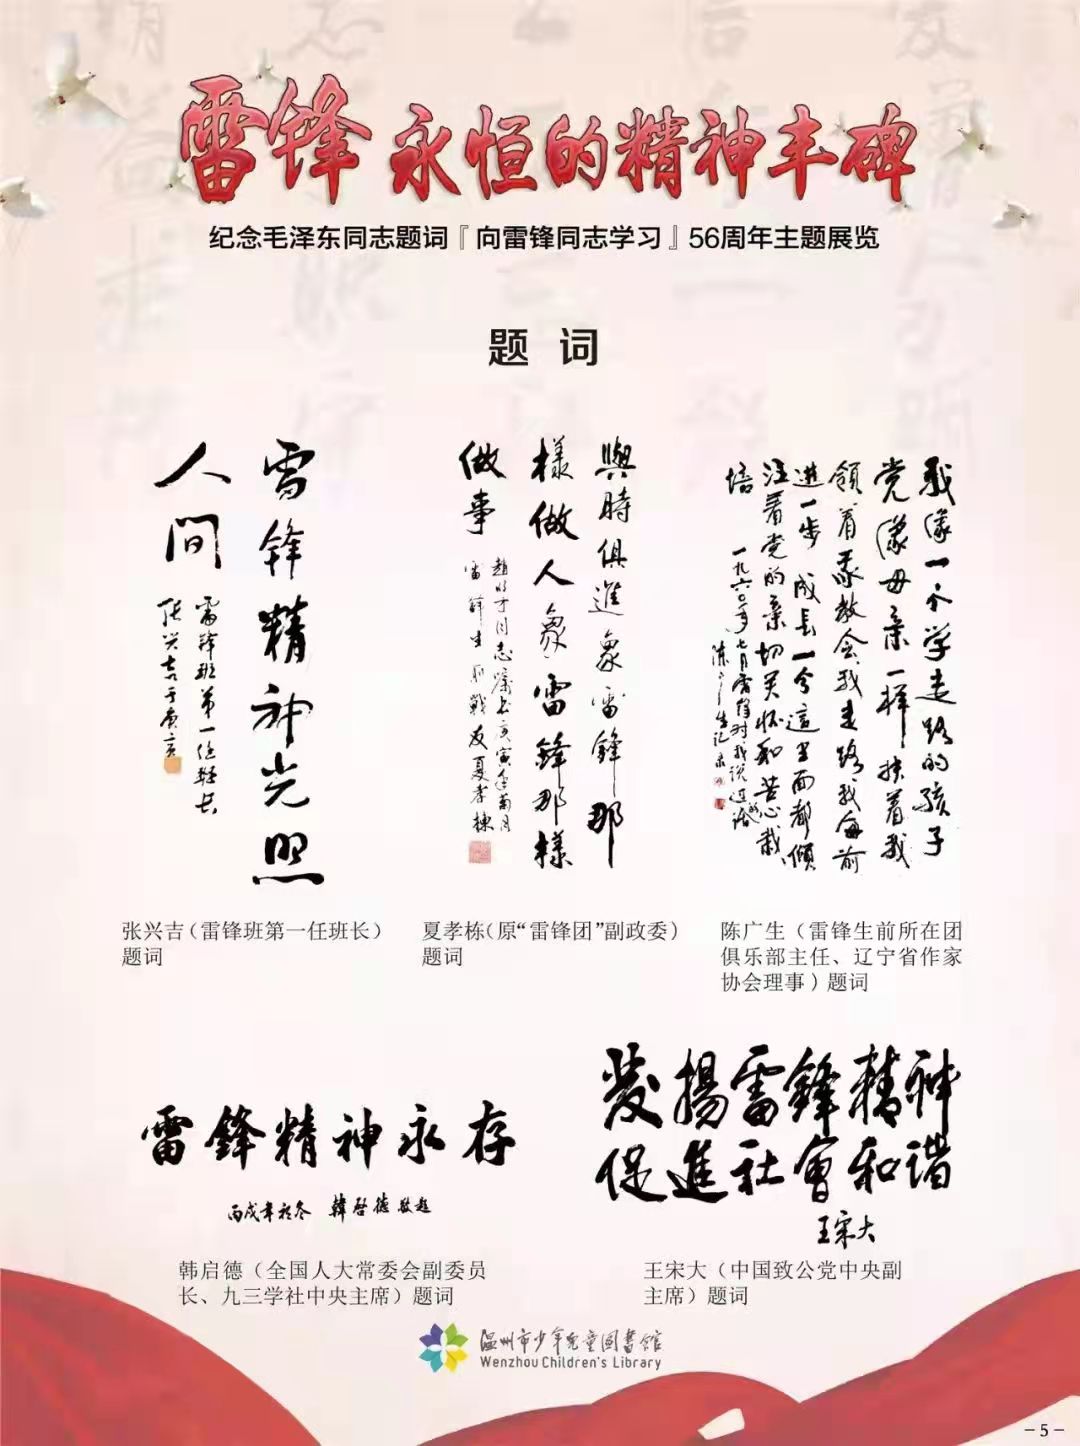 雷锋 永恒的精神丰碑
纪念毛泽东同志题词『向雷锋同志学习』56周年主题展览
题 词
雷锋精神光照
人间
雷锋班第一任班长
张兴吉于庚寅
與時俱進象雷鋒那
樣做人象雷鋒那樣
做事
雷鋒生前戰友夏孝棟
我像一个学走路的孩子
党像母亲一样扶着我
领着我教会我走路我每前
进一步成长一分這里面都倾
注着党的亲切关怀和苦心栽
培
一九六〇年七月雷锋对我说过的话
陈广生记录
张兴吉（雷锋班第一任班长）
题词
夏孝栋（原“雷锋团”副政委）
题词
陈广生（雷锋生前所在团
俱乐部主任、辽宁省作家
协会理事）题词
雷鋒精神永存
丙戌年初冬 韓啓德敬题
發揚雷鋒精神
促進社會和谐
王宋大
韩启德（全国人大常委会副委员
长、九三学社中央主席）题词
王宋大（中国致公党中央副
主席）题词
温州市少年兒童图書館
Wenzhou Children's Library
－5－